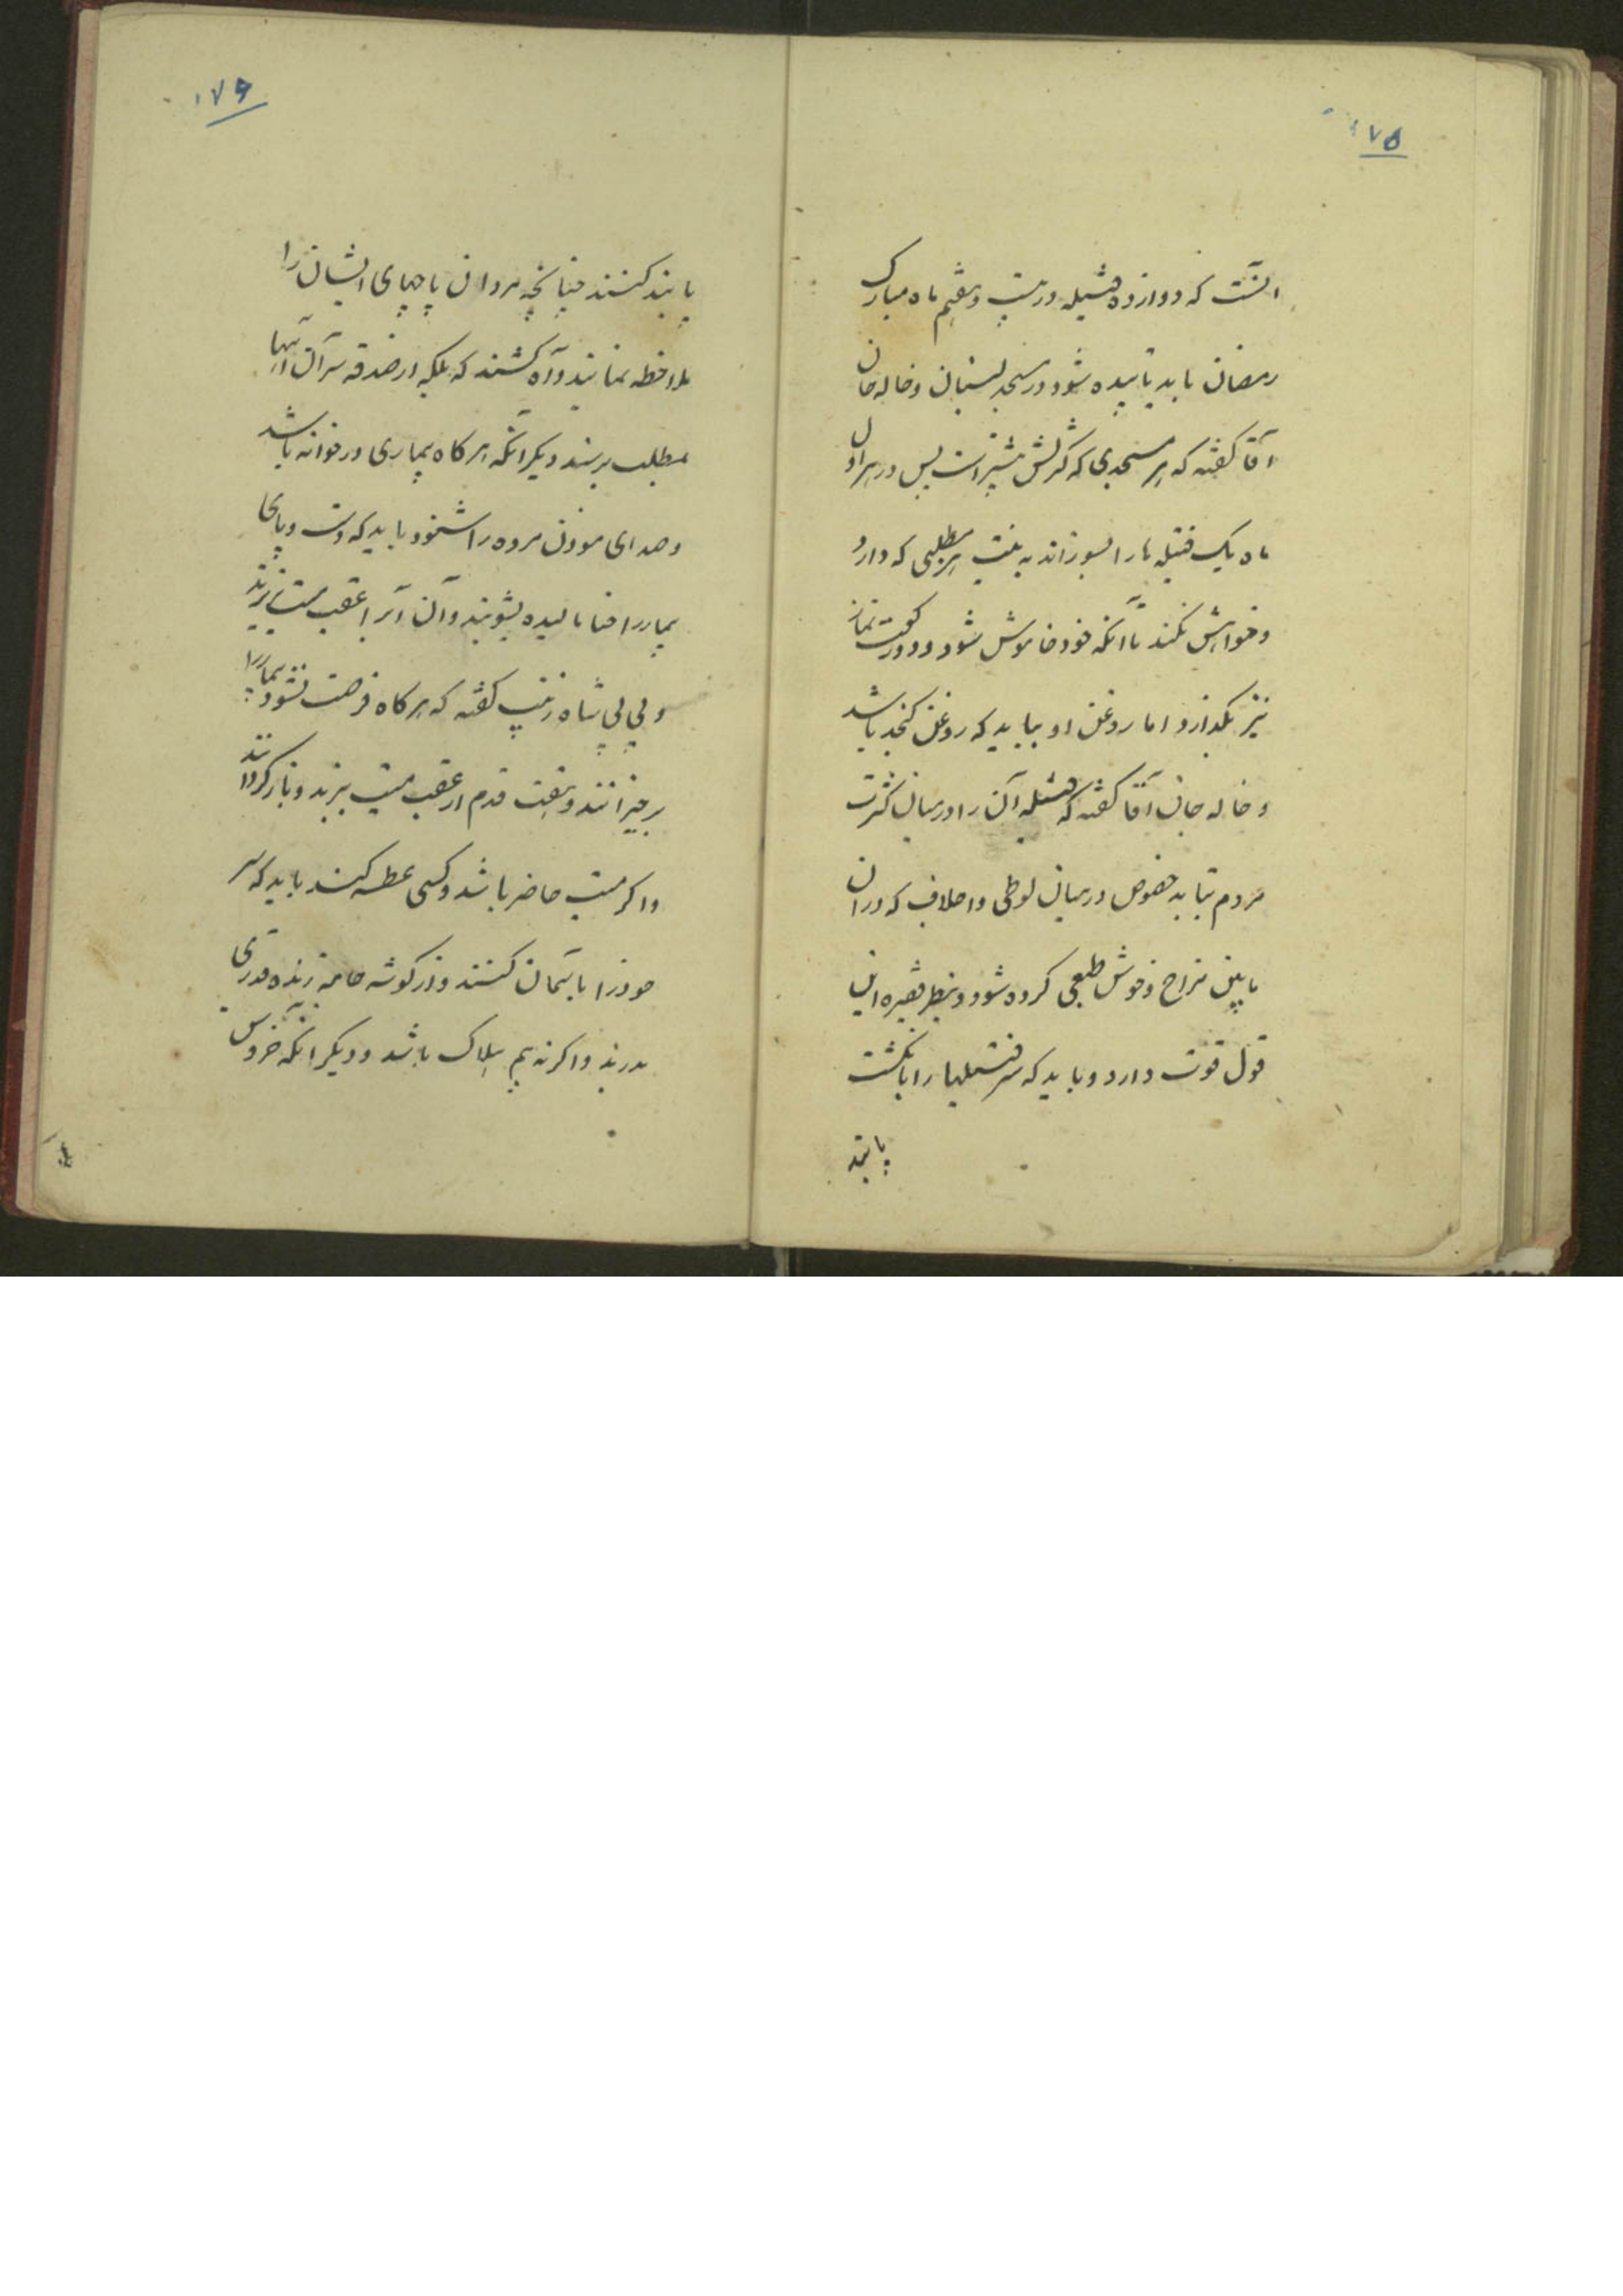 ۱۷۵
آنست که دوازده فتیله در بیست و هفتم ماه مبارک
رمضان باید تابیده شود در مسجد لنبان و خاله جان
آقا گفته که هر مسجدی که کثرتش بیشتر است پس در هر اول
ماه یک فتیله ها را بسوزاند به نیت هر مطلبی که دارد
و خواهش نکند تا آنکه خود خاموش شود و دو رکعت نماز
نیز بگذارد اما روغن او بباید که روغن کنجد باشد
و خاله جان آقا گفته که فتیله آن را در میان کثرت
مردم بتابد خصوص در میان لوطی و اجلاف که در آن
مابین مزاح و خوش طبعی کرده شود و بنظر فقیره این
قول قوت دارد و باید که سر فتیلها را بانگشت
پابند
۱۷۶
پابند کنند چنانچه مردان پاچهای ایشان را
ملاحظه نمایند و آه کشند که بلکه از صدقه سر آن آنها
بمطلب برسند دیگر آنکه هر گاه بیماری در خوانه باشد
و صدای موذن مرده را شنود باید که دست و پای
بیمار را حنا مالیده بشویند و آن آب را عقب میت بریزند
و بی بی شاه زینب گفته که هر گاه فرصت نشود بیمار را
برخیزانند و هفت قدم از عقب میت ببرند و باز گردانند
و اگر میت حاضر باشد و کسی عطسه کند باید که سر
خود را باسمان کنند و از گوشه جامه زنده قدری
بدرند و اگر نه بیم هلاک باشد و دیگر آنکه خروس